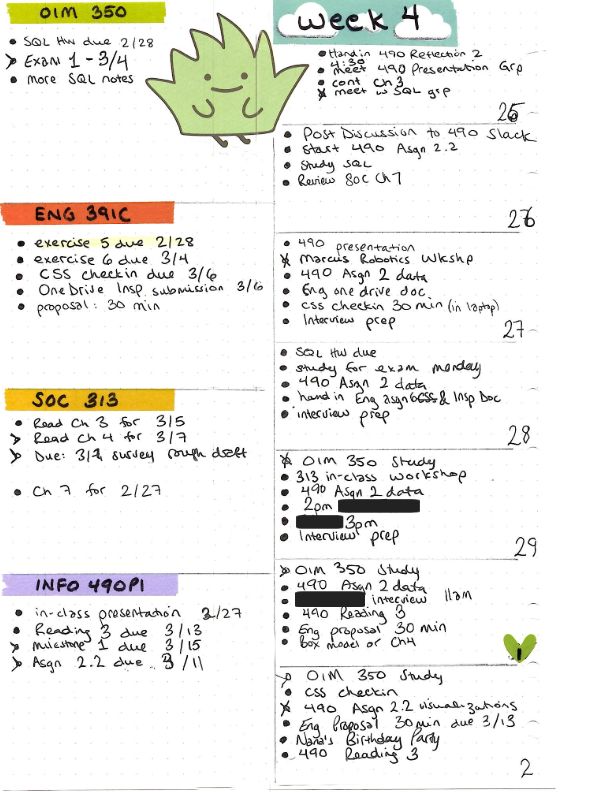 OIM 350
• SQL HW due 2/28
> Exam 1 - 3/4
• more SQL notes
ENG 391C
• exercise 5 due 2/28
• exercise 6 due 3/4
• CSS checkin due 3/6
• OneDrive Insp. submission 3/6
• proposal: 30 min
SOC 313
• Read Ch 3 for 3/5
> Read Ch 4 for 3/7
> Due: survey rough draft
• Ch 7 for 2/27
INFO 490PI
• in-class presentation 2/27
• Reading 3 due 3/13
> milestone 1 due 3/15
> Asgn 2.2 due 3/11
Week 4
• Hand in 490 Reflection 2
4:30
• meet 490 Presentation Grp
• cont Ch 3
x meet w SQL grp
25
• Post Discussion to 490 Slack
• start 490 Asgn 2.2
• Study SQL
• Review SOC Ch 7
26
• 490 presentation
x Marcus Robotics Wkshp
• 490 Asgn 2 data
• Eng one drive doc
• css checkin 30 min (in laptop)
• Interview prep
27
• SQL HW due
• study for exam monday
• 490 Asgn 2 data
• hand in Eng asgn & Insp Doc
• interview prep
28
x OIM 350 Study
• 313 in-class workshop
• 490 Asgn 2 data
• 2pm
• 3pm
• Interview prep
29
> OIM 350 Study
• 490 Asgn 2 data
• interview 11am
• 490 Reading 3
• Eng proposal 30 min
• box model or Ch4
1
> OIM 350 Study
• css checkin
x 490 Asgn 2.2 visualizations
• Eng Proposal 30 min due 3/13
• Nana's Birthday Party
• 490 Reading 3
2